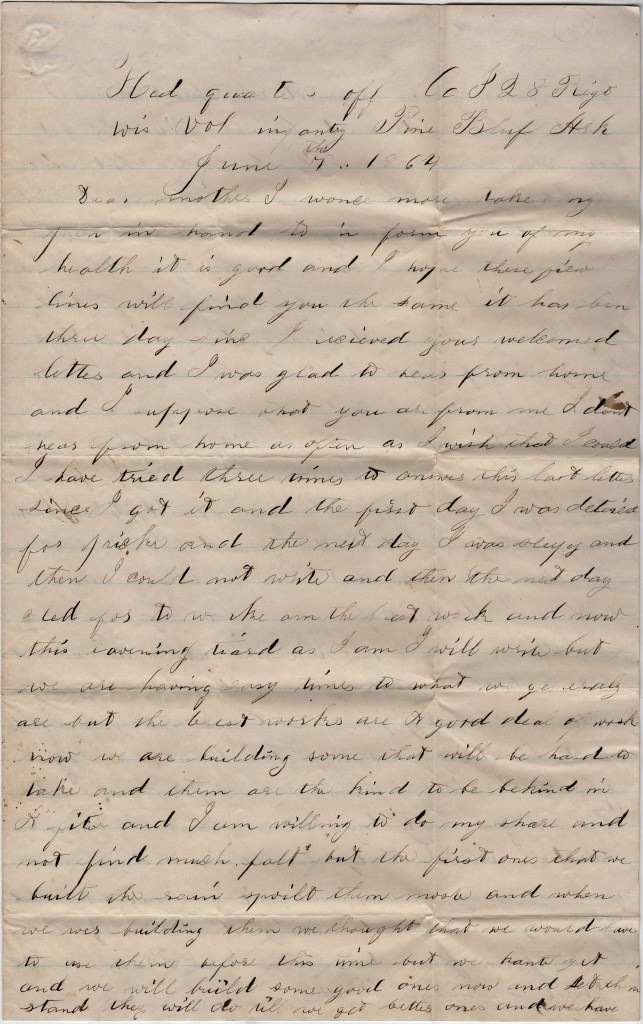 Head quarters off Co I 28 Regt
wis Vol infantry Pine Bluf Ark
June 7th 1864
Dear mother I wonce more take my
pen in hand to in form you of my
health it is good and I hope these few
lines will find you the same it has ben
three day since I recieved your welcomed
letter and I was glad to hear from home
and I suppose that you are from me I dont
hear from home as often as I wish that I could
I have tried three times to answer this last letter
since I got it and the first day I was detailed
for picket and the next day I was sleepy and
then I could not write and then the next day
for to worke on the brest work and now
this eavening tiard as I am I will write but
we are having easy times to what we generaly
are but the brest works are A good deal of work
now we are building some that will be hard to
take and them are the kind to be behind in
A fite and I am willing to do my share and
not find much falt but the first ones that we
built the rain spoilt them most and when
we wer building them we thought that we would have
to use them before this time but we hante yet
and we will build some good ones now and let them
stand they will do till we get better ones and we have